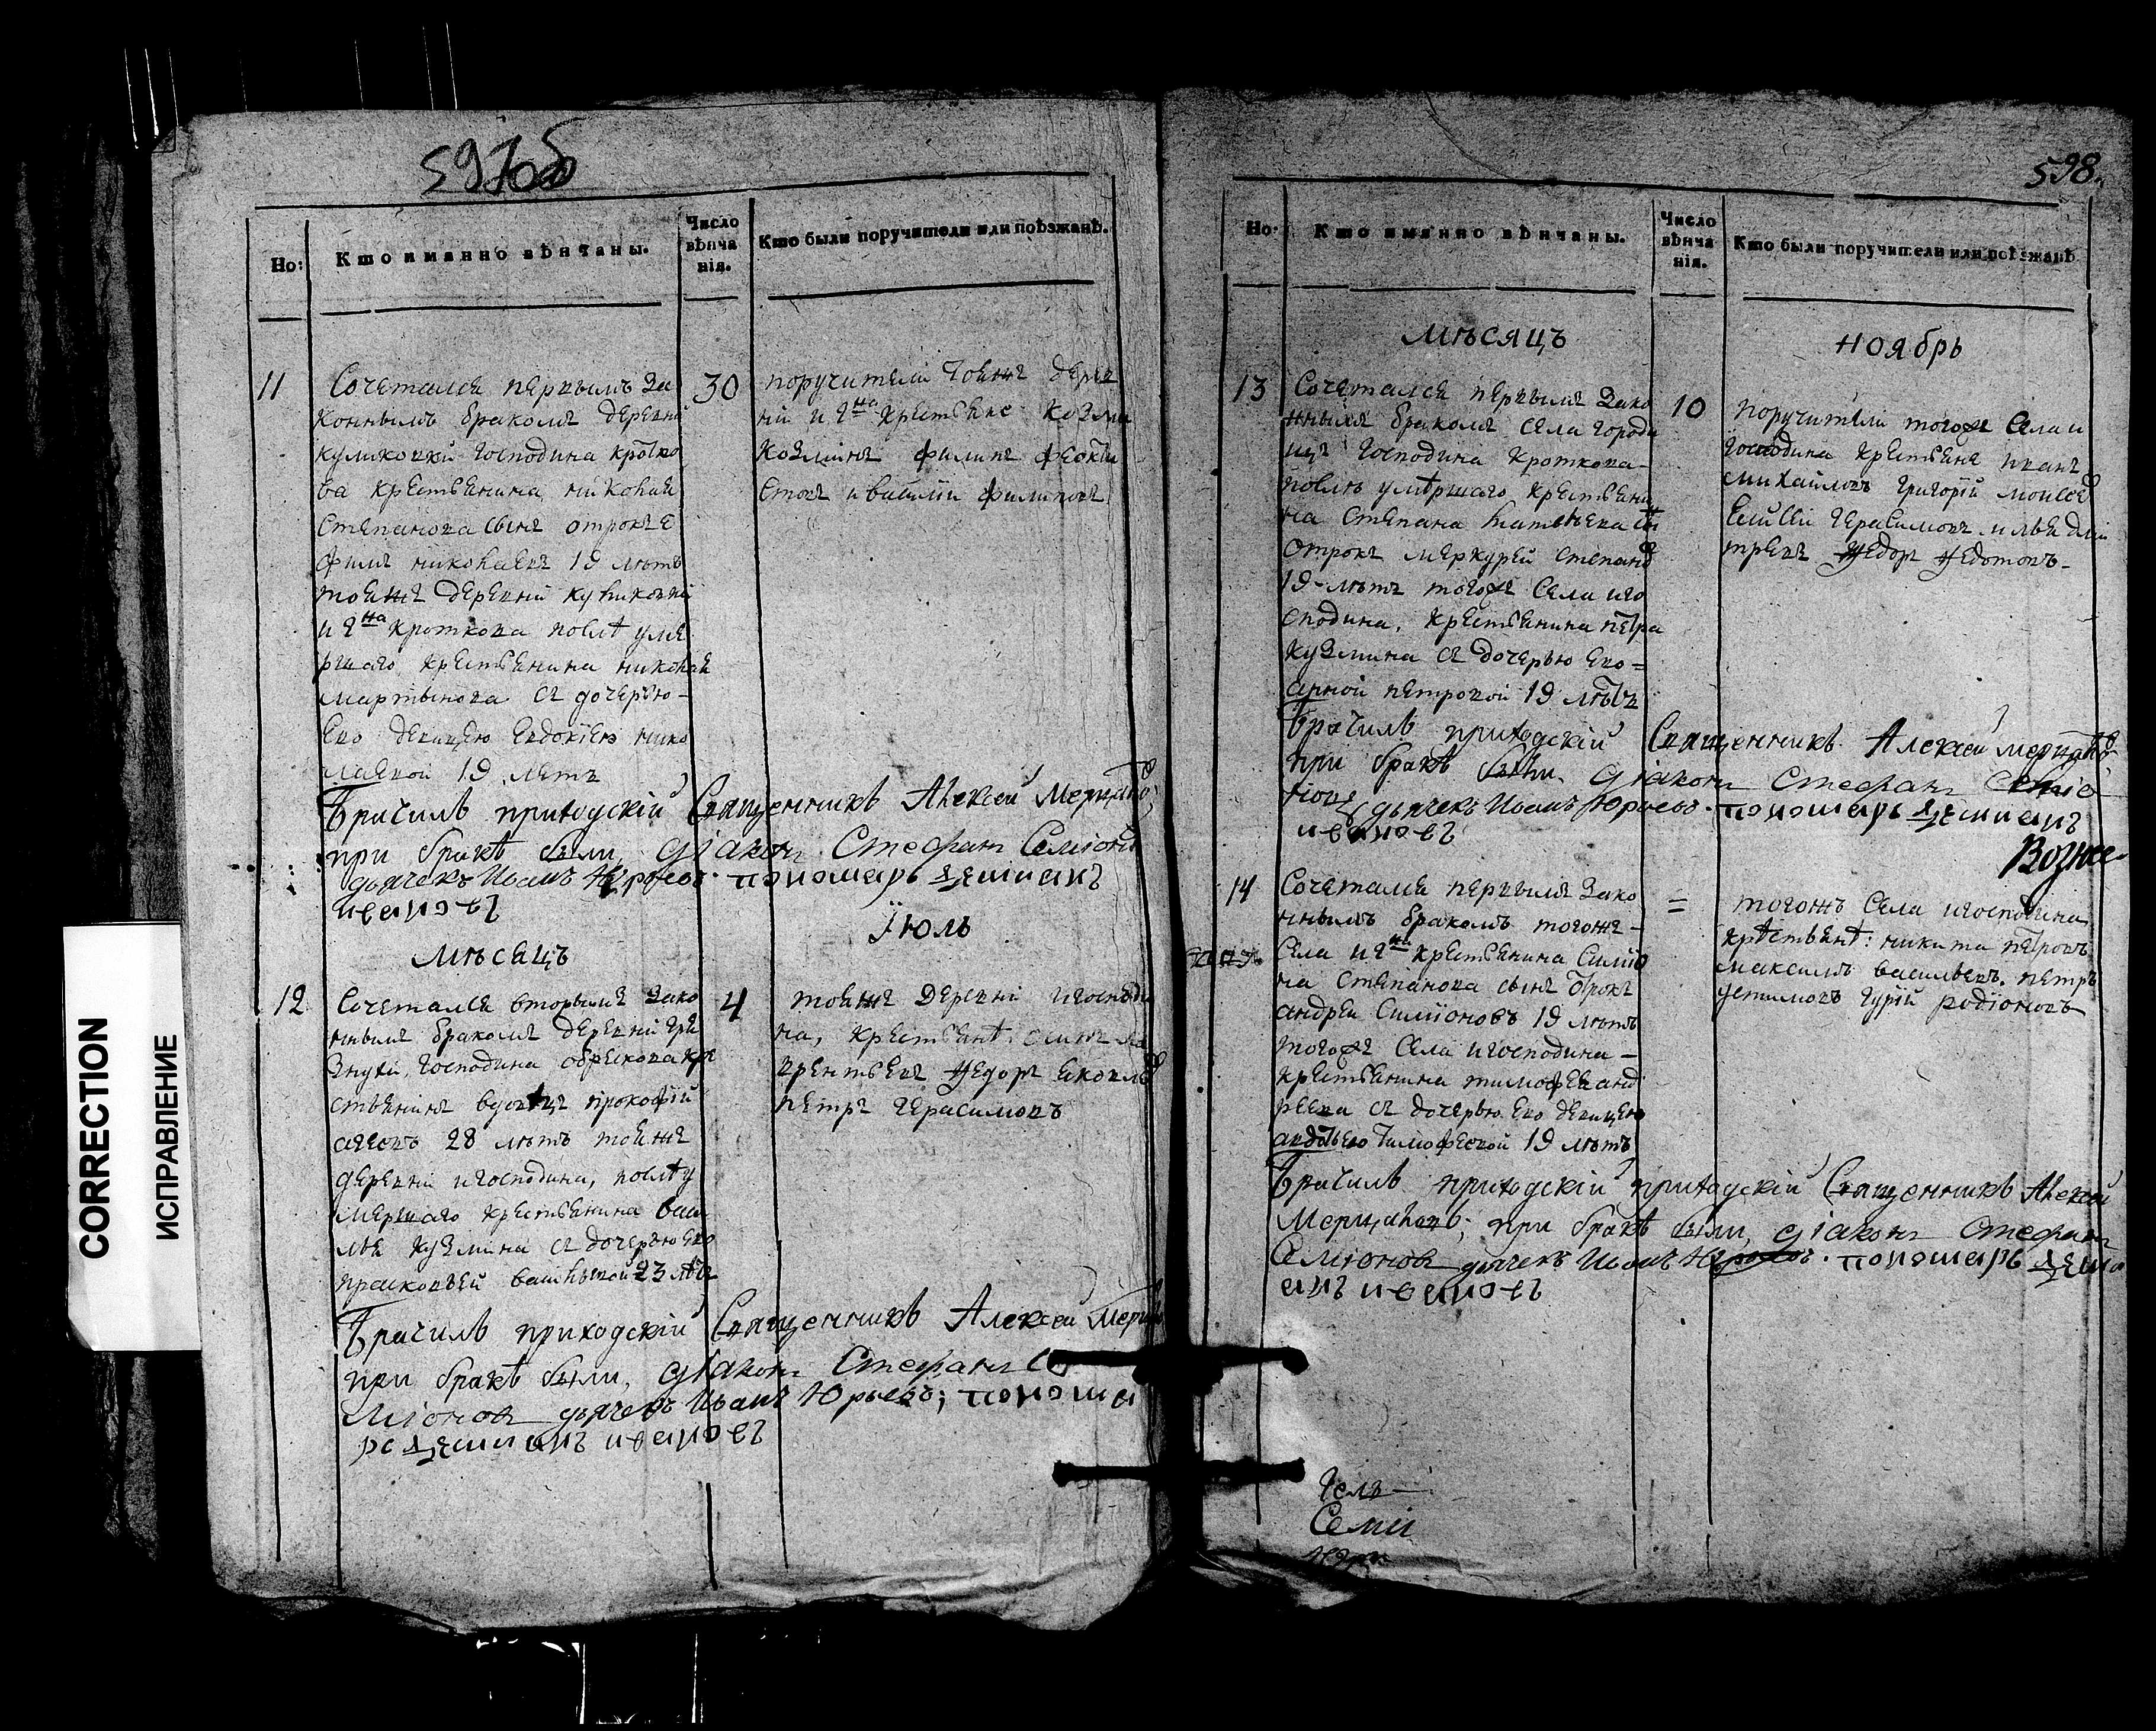 597об
598.
Но:
Кто имянно вѣнчаны.
Число вѣнча нія.
Кто были поручители или поѣзжанѣ.
11
Сочетался первымъ за
коннымъ бракомъ деревни
куликовки господина кротко
ва крестьянина николая
степанова сынъ отрокъ е
фимъ николаевъ 19 лѣтъ
тояжъ деревни куликовки
и гна кроткова послѣ уме
ршаго крестьянина николая
мартынова съ дочерью
ево девицею евдокіею нико
лаевой 19 лѣтъ
30
поручители тояжъ дерев
ни и гна крестьяне козма
козминъ филипъ феокти
стовъ и василіи филиповъ
Брачилъ приходскій Священникъ Алексей
при бракѣ были, діаконъ Стефанъ Семіонов
дьячекъ Иванъ Юрьевъ. пономарь демианъ
ивановъ
Мѣсяцъ Іюль
12
Сочетался вторымъ зако
ннымъ бракомъ деревни гря
знухи, господина обрескова кре
стьянинъ вдовецъ прокофій
28 лѣтъ тояжъ
деревни и господина, послѣ у
мершаго крестьянина васи
лья кузмина съ дочерью ево
прасковьей васильевой 23 лѣтъ
4
тояжъ деревни и господи
на, крестьянѣ
федоръ яковлев
петръ герасимовъ
Брачилъ приходскій Священникъ Алексей
при бракѣ были, діаконъ Стефанъ Се
міоновъ дьячекъ Иванъ Юрьевъ; понома
рь демианъ ивановъ
Но:
Кто имянно вѣнчаны.
Число вѣнча нія.
Кто были поручители или поѣзжанѣ
Мѣсяцъ Ноябрь
13
Сочетался первымъ зако
ннымъ бракомъ села городи
щъ господина кроткова
послѣ умѣршаго крестьяни
на степана матвѣева сы
отрокъ меркурей степанов
19 лѣтъ тогожъ села и го
сподина, крестьянина петра
кузмина съ дочерью ево
петровой 19 лѣтъ
10
поручители тогожъ села и
господина крестьяня иванъ
михайловъ григорій моисеев
елисѣй герасимовъ илья дми
тревъ федоръ федотовъ
Брачилъ приходскій Священникъ Алексей
при бракѣ были, діаконъ Стефанъ Семіо
новъ дьячекъ Иванъ Юрьевъ. пономарь демианъ
ивановъ
14
Сочетался первымъ зако
ннымъ бракомъ тогожъ
села и гна крестьянина симіо
на степанова сынъ отрокъ
андрей симіоновъ 19 лѣтъ
тогожъ села и господина
крестьянина тимофея анд
реева съ дочерью ево девицею
авдотьею тимофеевой 19 лѣтъ
=
тогожъ села и господина
крѣстьянѣ: никита петровъ
максимъ васильевъ. петръ
устимовъ гурій родіоновъ
Брачилъ приходскій приходскій Священникъ Алексей
при бракѣ были, діаконъ Стефанъ
Семіоновъ дьячекъ Иванъ Юрьевъ. пономарь деми
анъ ивановъ
Семи
CORRECTION
ИСПРАВЛЕНИЕ